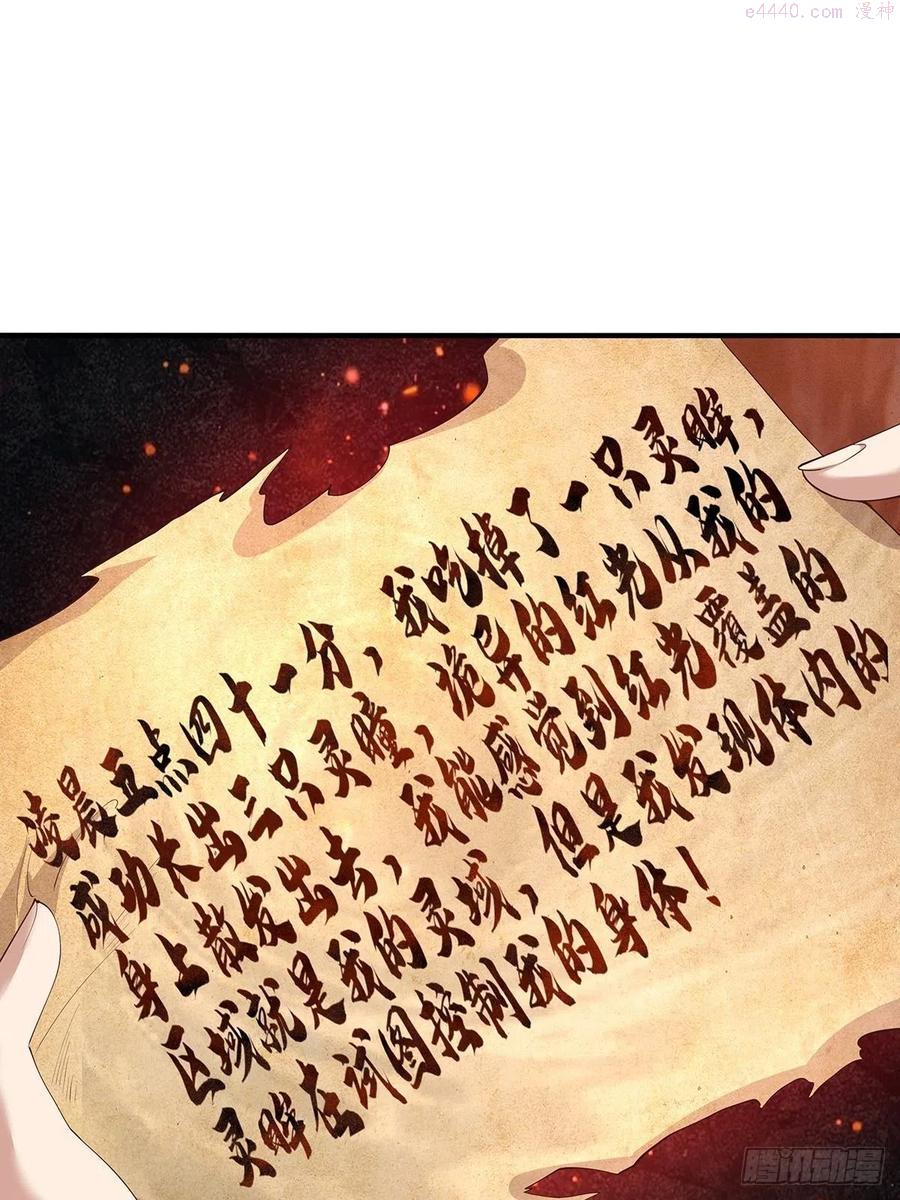 e4440.com 漫神
凌晨五点四十一分，我吃掉了一只灵眸，
成功长出三只灵瞳，诡异的红光从我的
身上散发出去，我能感觉到红光覆盖的
区域就是我的灵域，但是我发现体内的
灵眸在试图控制我的身体！
腾讯动漫